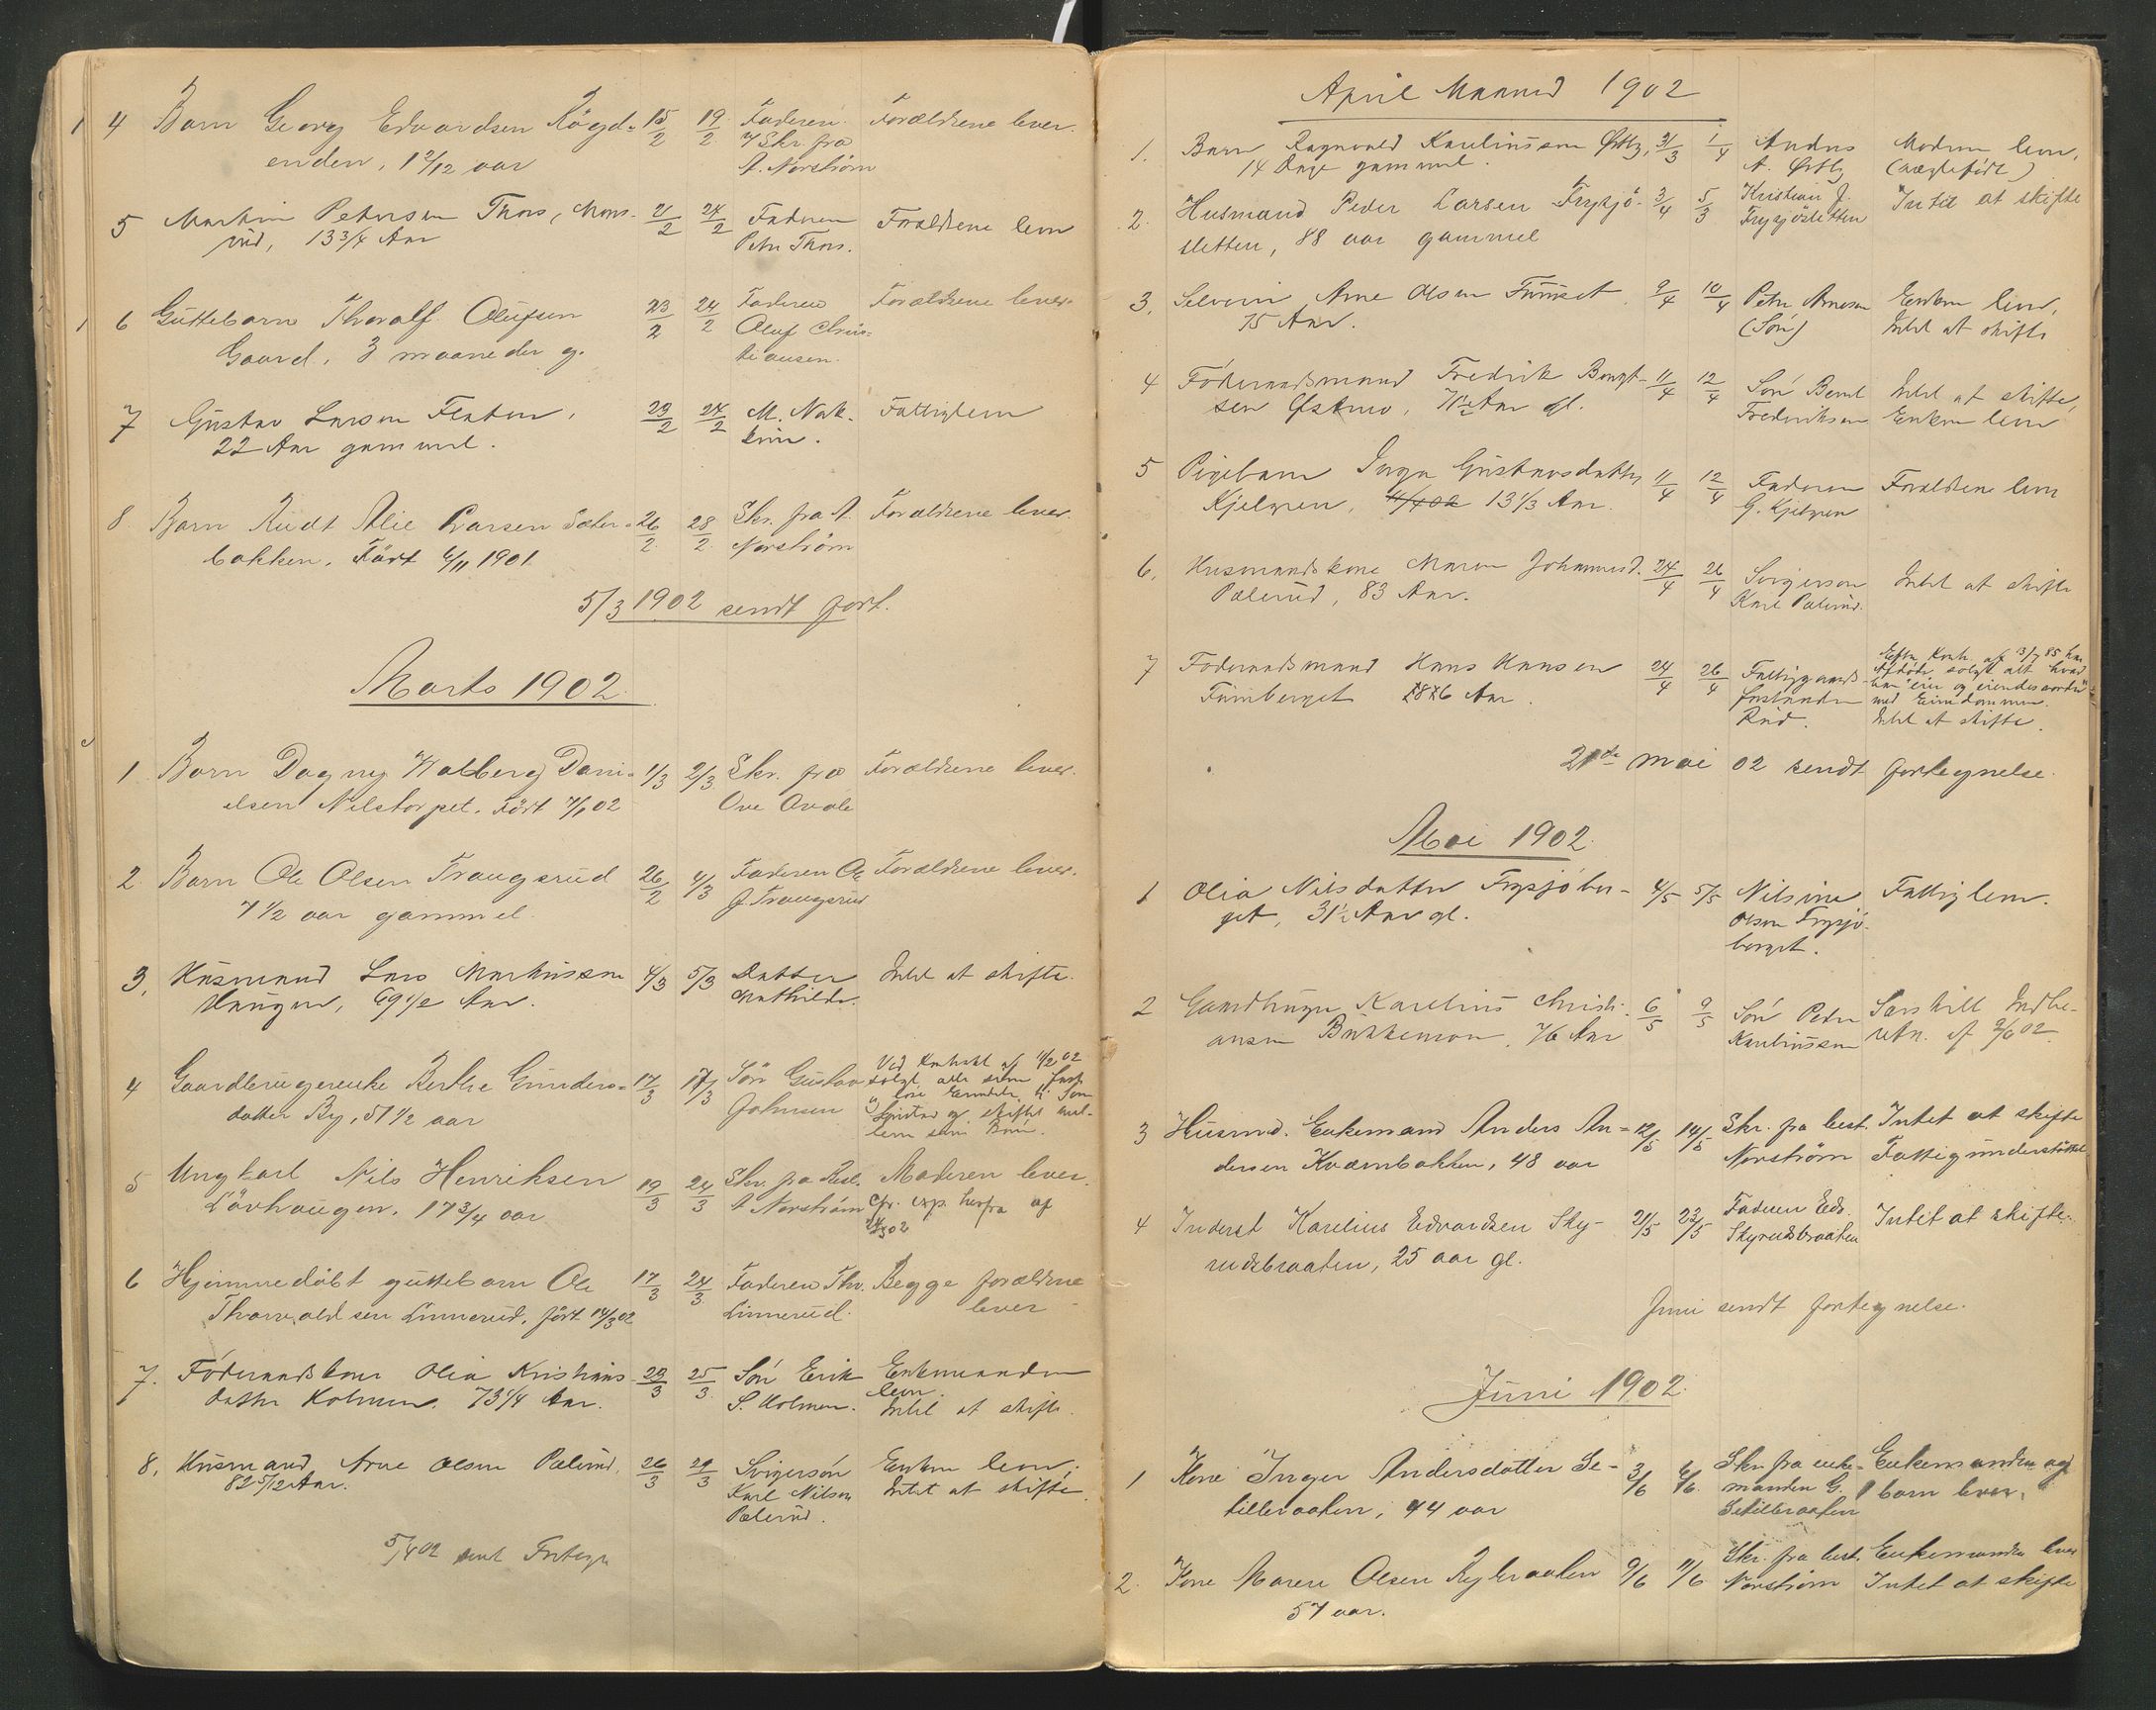 4 Barn Georg Edvardsen Rögd- 15/2 19/2 Faderen Forældrene lever.
enden, 1 2/12 aar Skr. fra
A. Norström
5 Martin Petersen Thors, Mons- 21/2 24/2 Faderen Forældrene lever
rud, 13 3/4 Aar Peter Thors.
6 Guttebarn Thoralf Olufsen 23/2 24/2 Faderen Forældrene lever.
Gaard, 3 maaneder g. Oluf Chris-
tiansen.
7 Gustav Larsen Flaten, 23/2 24/2 M. Nak- Fattiglem
22 Aar gammel. kim.
8 Barn Rudt Alie Larsen Sæter- 26/2 28/2 Skr. fra A. Forældrene lever.
bakken. Födt 6/11 1901 Norström
5/3 1902 sendt fort.
Marts 1902.
1 Barn Dagny Walberg Dani- 1/3 2/3 Skr. fra Forældrene lever.
elsen Nilstorpet. Födt 7/1 02 Ove Ovale
2. Barn Ole Olsen Traugsrud 26/2 4/3 Faderen Ole Forældrene lever.
7 1/2 aar gammel. J. Traugsrud
3. Husmand Lars Markussen 4/3 5/3 Datter Intet at skifte.
Haugen, 69 1/2 Aar. Mathilde.
4 Gaardbrugerenke Berthe Gunders- 17/3 17/3 Sön Gustav Ved Kontrakt af 11/2 02
datter By, 51 1/2 aar Johnsen solgt alle sine faste
og löse Eiendele til Sön
Gustav og skiftet mel-
lem sine Börn.
5 Ungkarl Nils Henriksen 19/3 24/3 Skr. fra Best. Moderen lever.
Lövhaugen. 17 3/4 aar A. Norström Cfr. exp. herfra af
24/3 02
6 Hjemmedöbt guttebarn Ole 17/3 24/3 Faderen Thv. Begge forældrene
Thorvaldsen Linnerud, födt 14/3 02 Linnerud. lever
7. Föderaadskone Olia Kristians- 23/3 25/3 Sön Erik Enkemanden
datter Holmen. 73 1/4 Aar. S. Holmen. lever.
Intet at skifte.
8. Husmand Arne Olsen Pælerud, 26/3 29/3 Svigersön Enken lever,
82 5/12 Aar. Karl Nilsen Intet at skifte.
Pælerud.
5/4 02 sendt Fortegn
April Maaned 1902
1. Barn Ragnvald Karelinssen Ørbly, 31/3 1/4 Anders Modren lever,
14 Dage gammel. A. Ørbly (uægtefödt)
2. Husmand Peder Larsen Frysjö- 3/4 5/3 Kristian J. Intet at skifte
sletten, 88 aar gammel Frysjösletten
3. Selveier Arne Olsen Furuset 9/4 10/4 Peter Arnesen Enken lever,
75 Aar. (Sön) Intet at skifte
4 Föderaadsmand Fredrik Bengt- 11/4 12/4 Sön Bernt Intet at skifte,
sen Østmo, 71 1/2 Aar gl. Frederiksen Enken lever
5 Pigebarn Inga Gustavsdatter 11/4 12/4 Faderen Forældrene lever
Kjelgren, 13 1/3 Aar. G. Kjelgren
6. Husmandskone Maren Johannesd. 24/4 26/4 Svigersön Intet at skifte
Pælerud, 83 Aar. Karl Pælerud.
7 Föderaadsmand Hans Hansen 24/4 26/4 Fattiggaards- Efter Kontr. af 13/7 85 har
Furuberget 76 Aar. forstander Afdöde solgt alt hvad
Rud. han "eier og eiendes vorder"
med Eiendommen.
Intet at skifte.
21de mai 02 sendt fortegnelse.
Mai 1902.
1 Olia Nilsdatter Frysjöber- 4/5 5/5 Nilsine Fattiglem.
get, 31 1/2 Aar gl. Olsen Frysjö-
berget.
2 Gaardbruger Karelius Christi- 6/5 9/5 Sön Peder Særskilt Indbe-
ansen Bukkemoen, 76 Aar Kareliussen retn. af 2/6 02.
3 Husmd. Enkemand Anders An- 12/5 14/5 Skr. fra best. Intet at skifte
dersen Kværnbakken, 48 aar Norström Fattigunderstöttet
4 Inderst Karelius Edvardsen Sky- 21/5 23/5 Faderen Edv. Intet at skifte.
rudsbraaten, 25 aar gl. Skyrudsbraaten
Juni sendt fortegnelse.
Juni 1902.
1 Kone Inger Andersdatter Se- 3/6 6/6. Skr. fra enke- Enkemanden og
tilbraaten, 44 aar manden G. 1 barn lever.
Setilbraaten
2. Kone Maren Olsen Rybraaten 9/6 11/6 Skr. fra best. Enkemanden lever
57 aar. Norström Intet at skifte